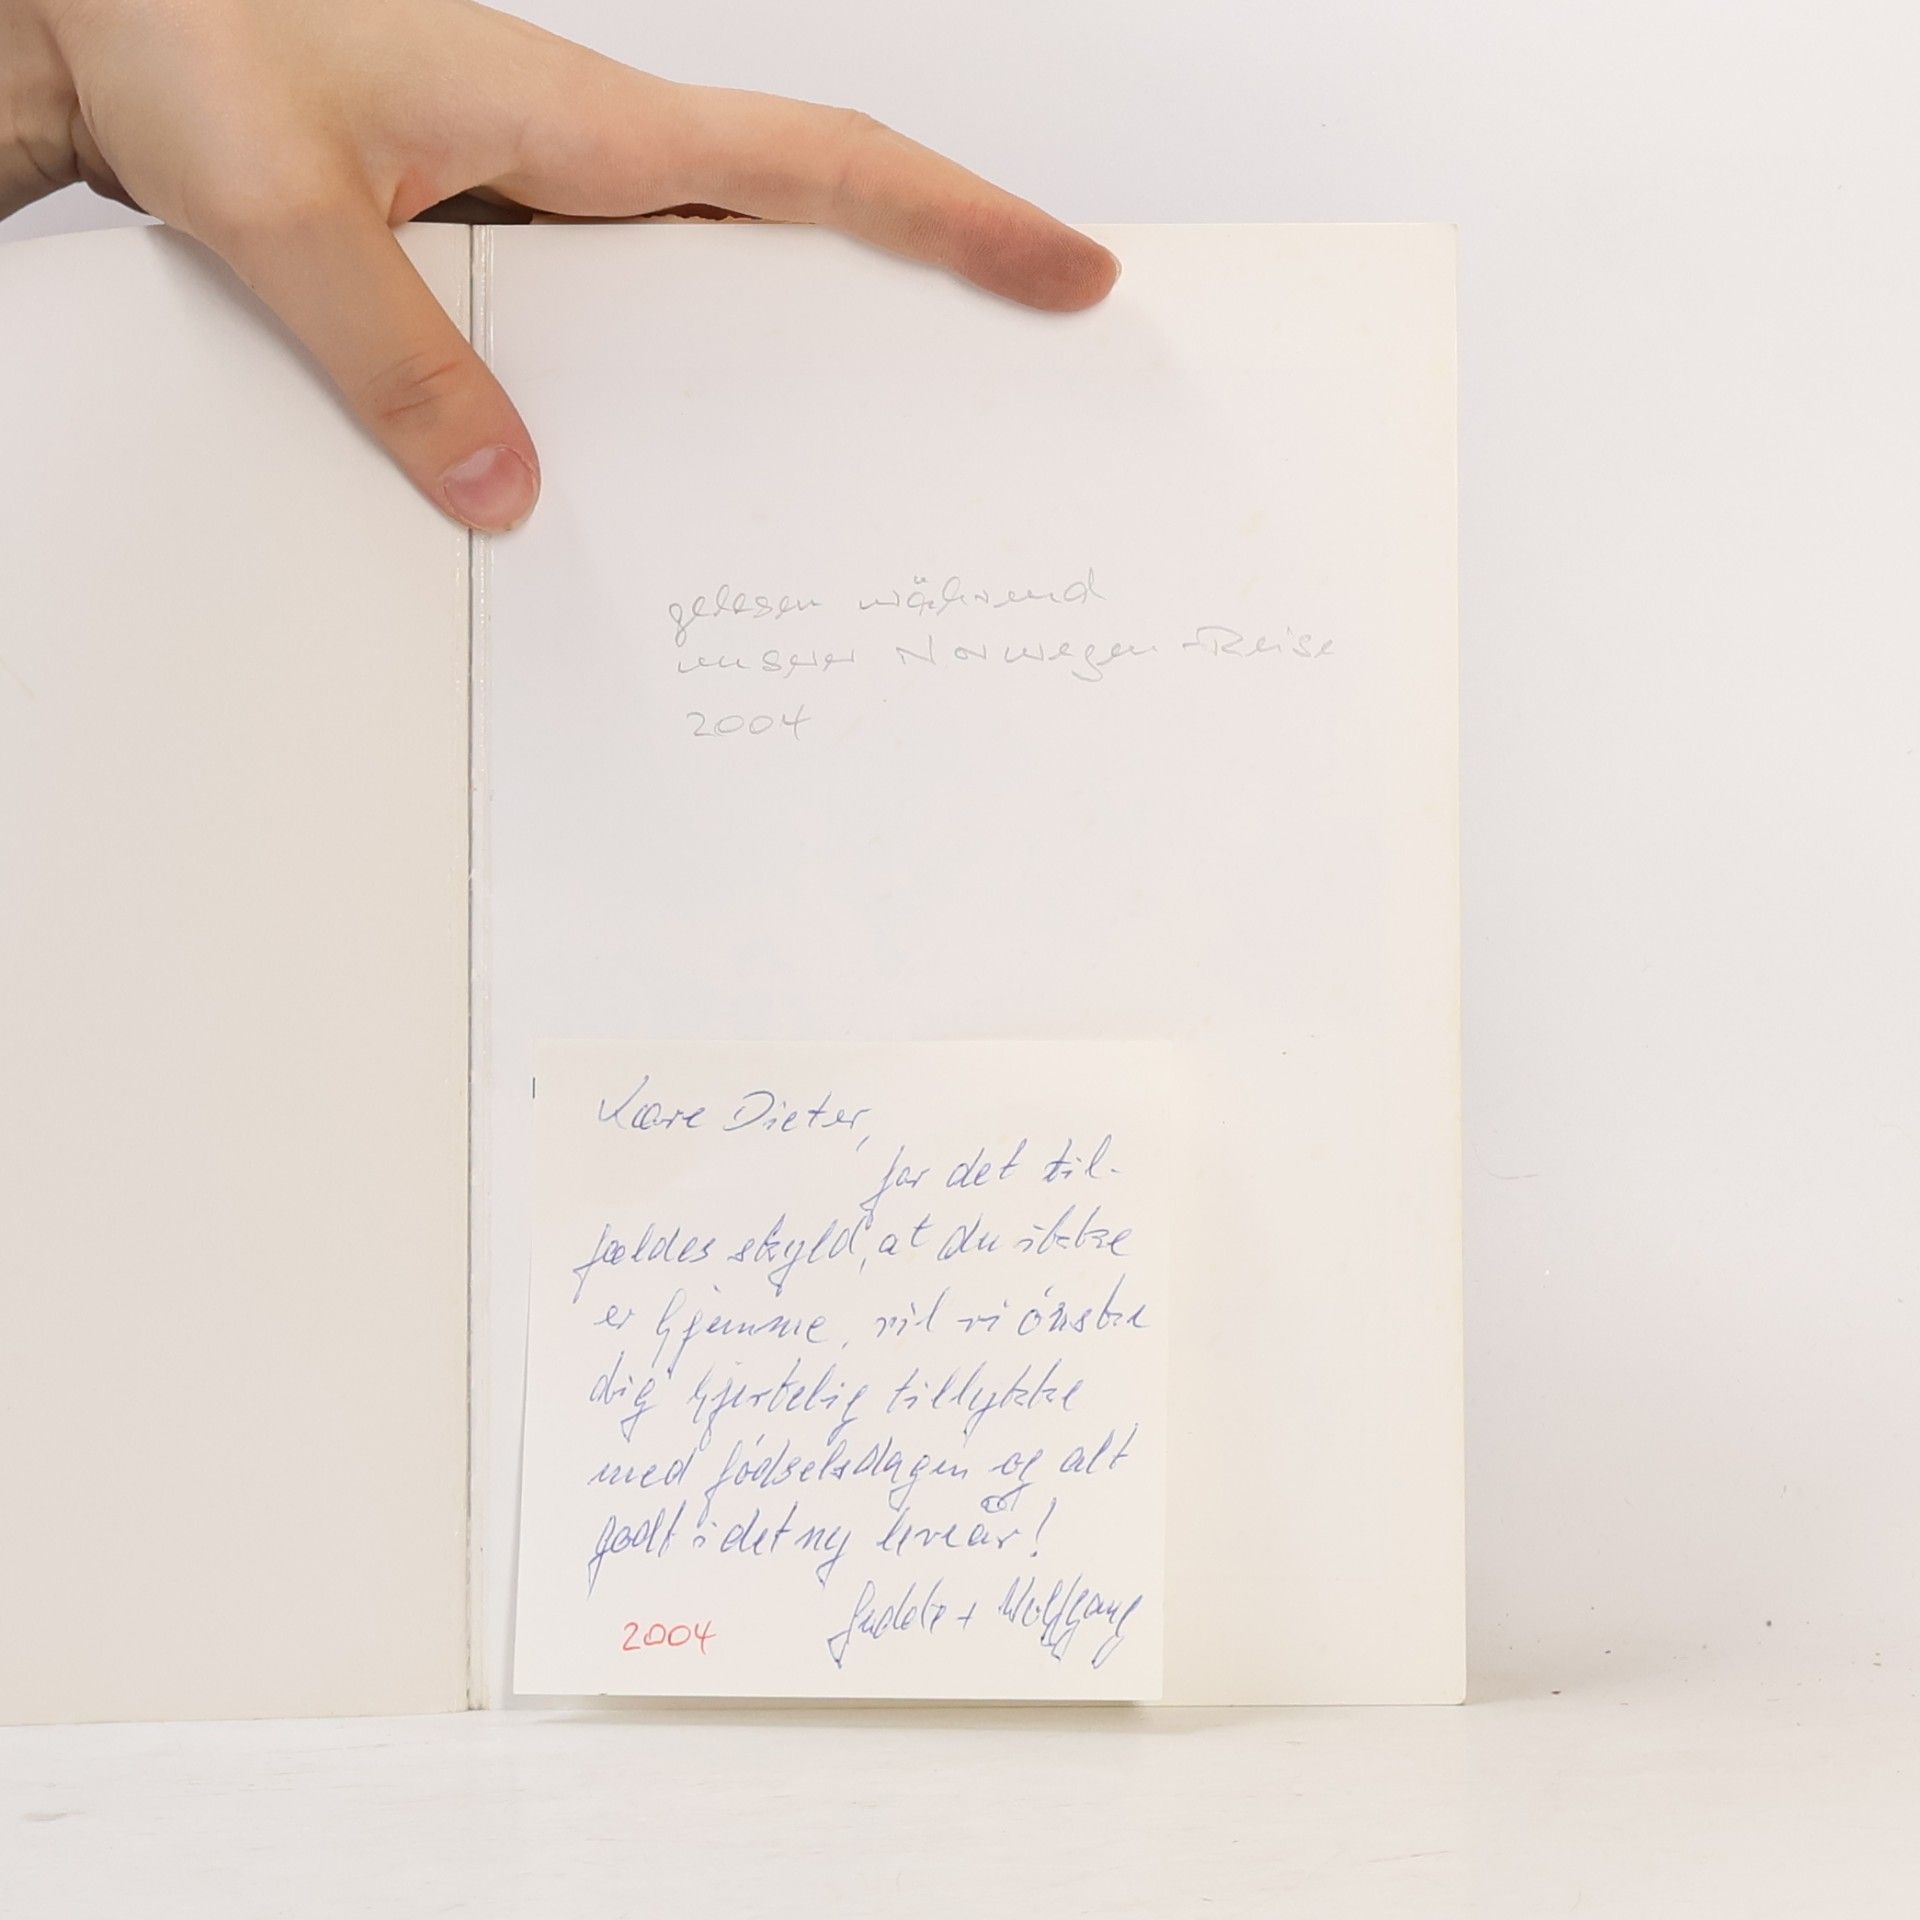 gelesen während
unserer Norwegen-Reise
2004
Kære Dieter,
for det til-
fældes skyld, at du ikke
er hjemme, vil vi ónske
dig hjertelig tillykke
med fódselsdagen og alt
godt i det ny leveår!
+ Wolfgang
2004